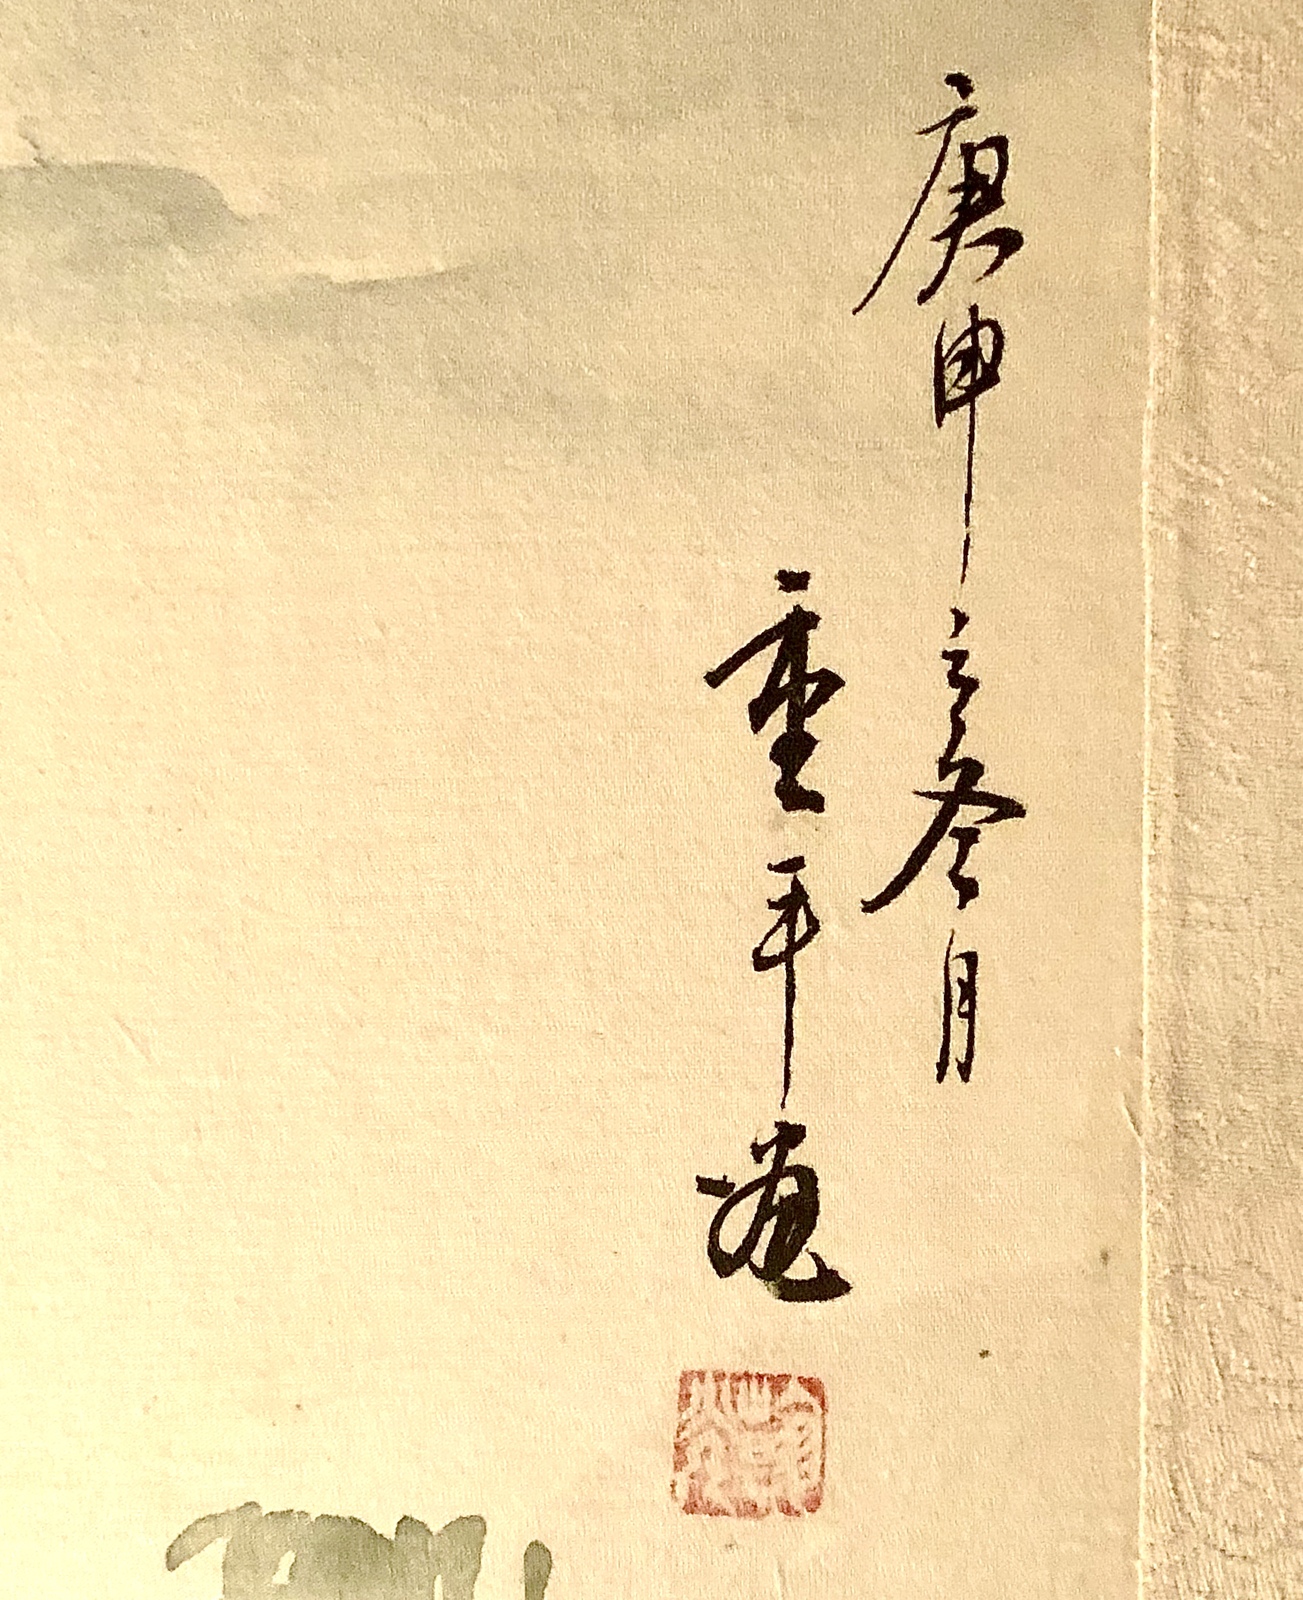 庚申之冬月
重平画